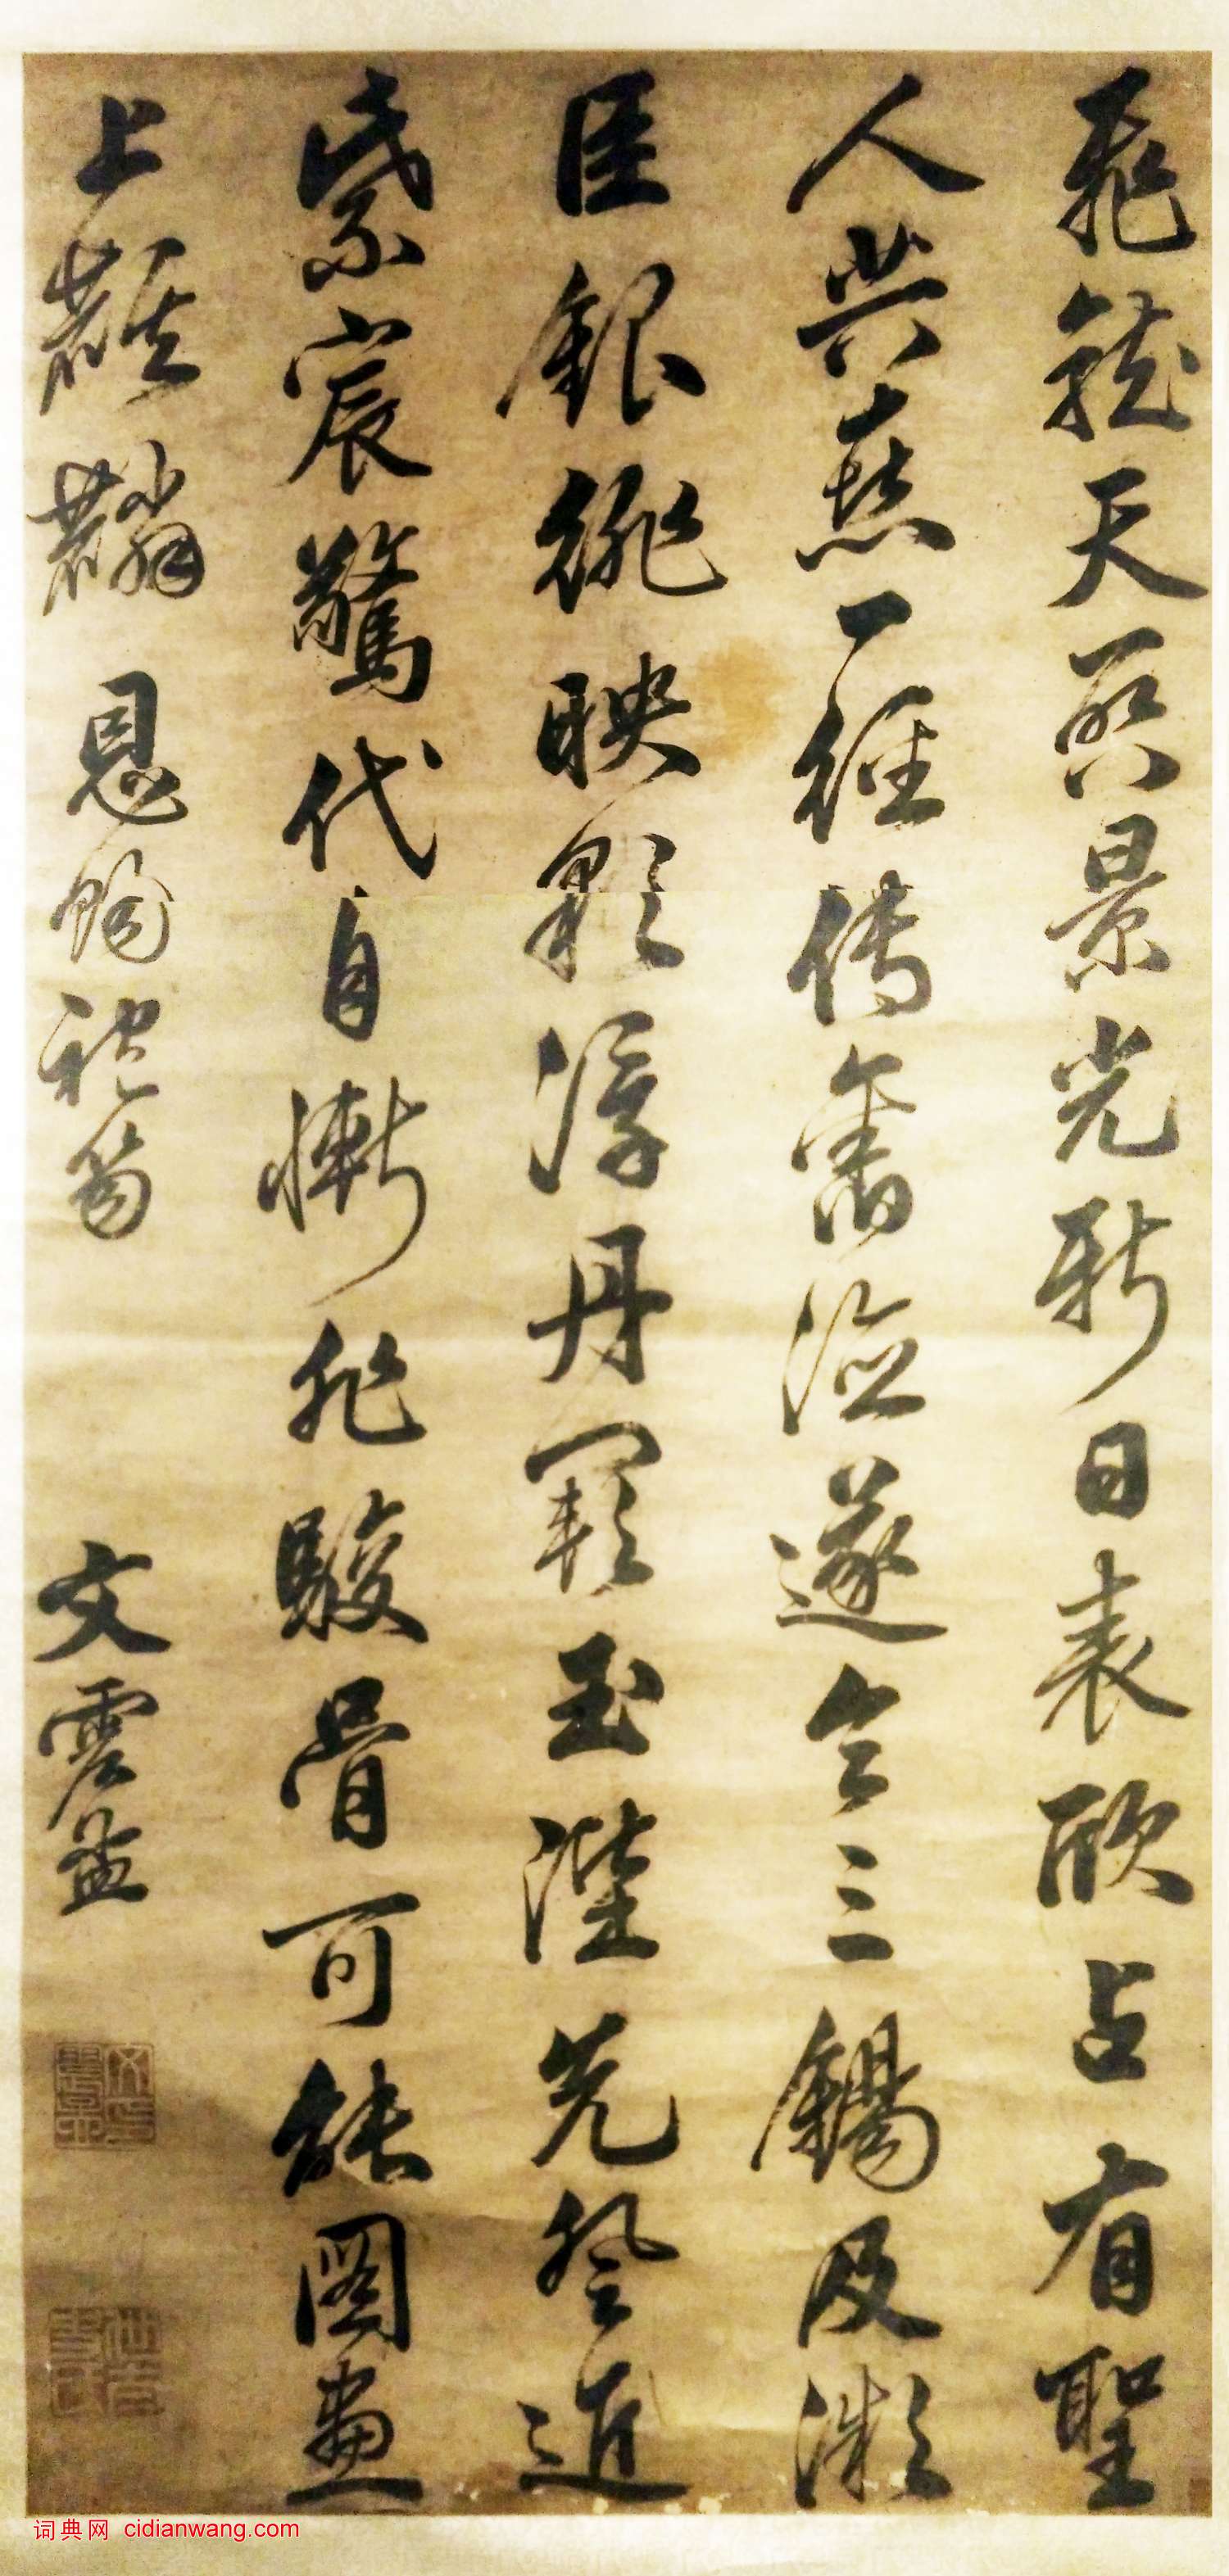 飛龍天啟景光新日表欣占有聖
人共一經傳舊遂令三錫及微
臣銀緋映浮丹闕玉陛先登近
紫宸驚代自慚非駿骨可能圖畫
上麒麟 恩賜袍笏 文震孟
词典网 cidianwang.com